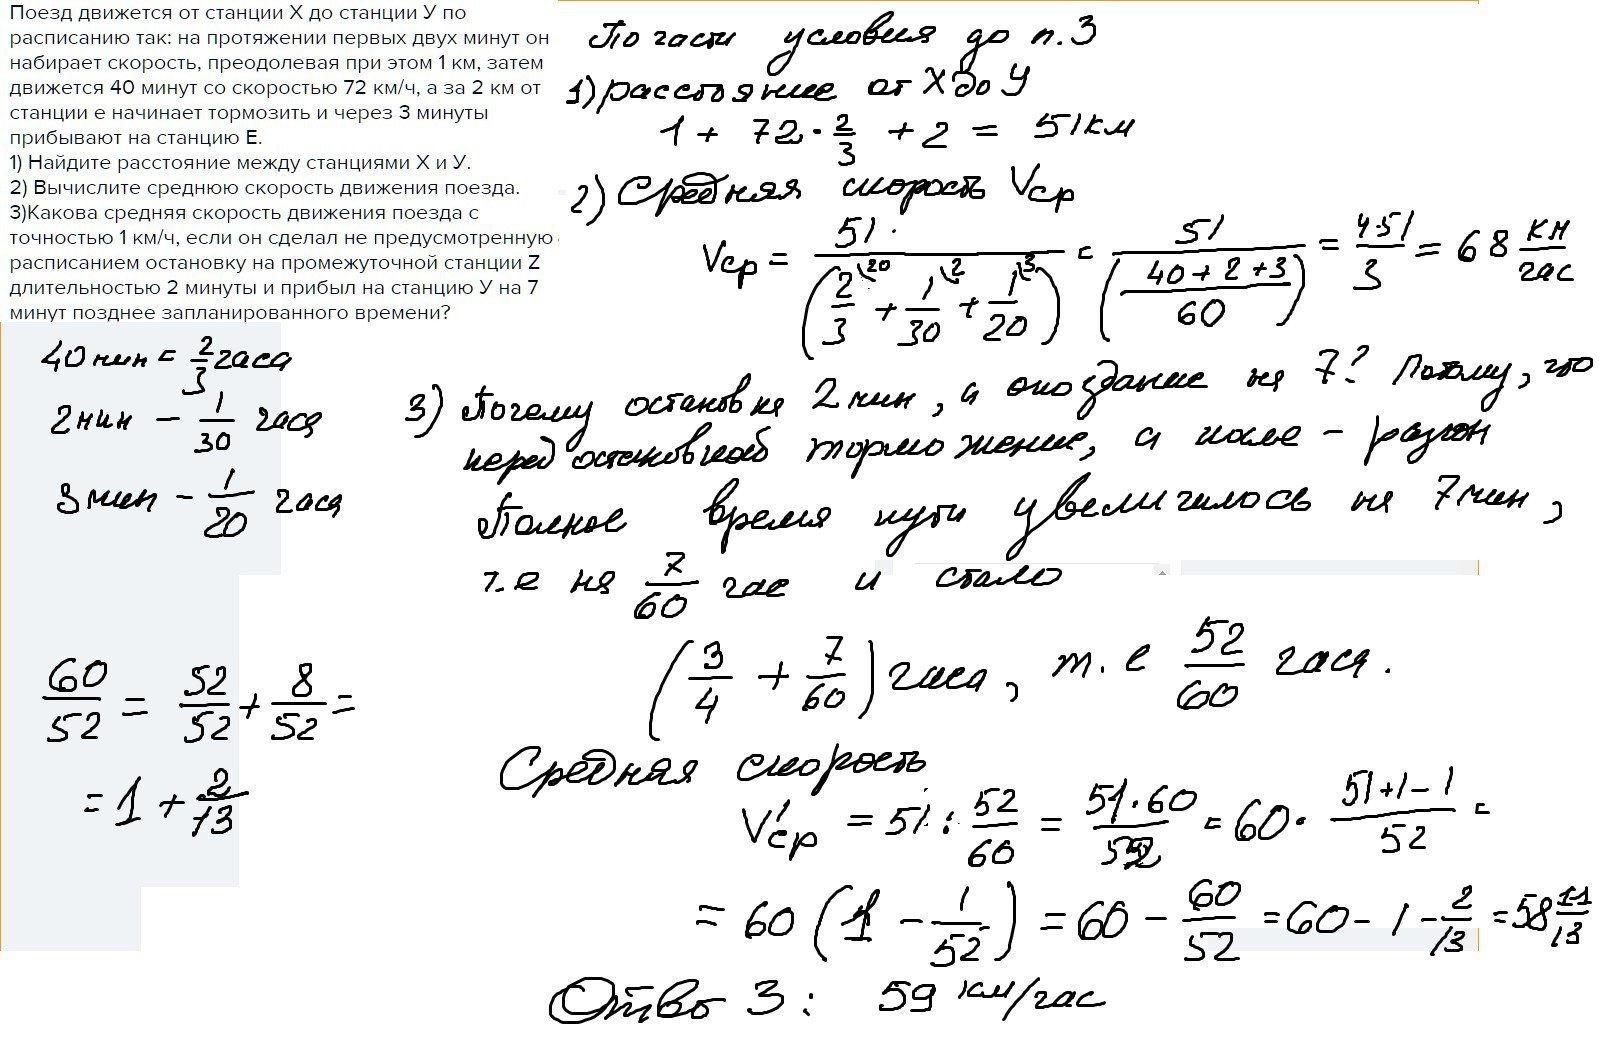 Поезд движется от станции Х до станции У по
расписанию так: на протяжении первых двух минут он
набирает скорость, преодолевая при этом 1 км, затем
движется 40 минут со скоростью 72 км/ч, а за 2 км от
станции е начинает тормозить и через 3 минуты
прибывают на станцию Е.
1) Найдите расстояние между станциями Х и У.
2) Вычислите среднюю скорость движения поезда.
3)Какова средняя скорость движения поезда с
точностью 1 км/ч, если он сделал не предусмотренную
расписанием остановку на промежуточной станции Z
длительностью 2 минуты и прибыл на станцию У на 7
минут позднее запланированного времени?
40 мин = 2/3 часа
2 мин – 1/30 часа
3 мин – 1/20 часа
60/52 = 52/52 + 8/52 =
= 1 + 2/13
По части условия до п.3
1) расстояние от Х до У
1 + 72 · 2/3 + 2 = 51 км
2) Средняя скорость Vср
Vср = 51 / (2/3 \20 + 1/30 \2 + 1/20 \3) = 51 / ((40+2+3)/60) = 4·51/3 = 68 км/час
3) Почему остановка 2 мин, а опоздание на 7? Потому, что
перед остановкой торможение, а после – разгон
Полное время пути увеличилось на 7 мин,
т.е на 7/60 час и стало
(3/4 + 7/60) часа, т.е 52/60 часа.
Средняя скорость
V'ср = 51 : 52/60 = 51·60/52 = 60 · (51+1–1)/52 =
= 60 (1 – 1/52) = 60 – 60/52 = 60 – 1 – 2/13 = 58 11/13
Ответ 3: 59 км/час